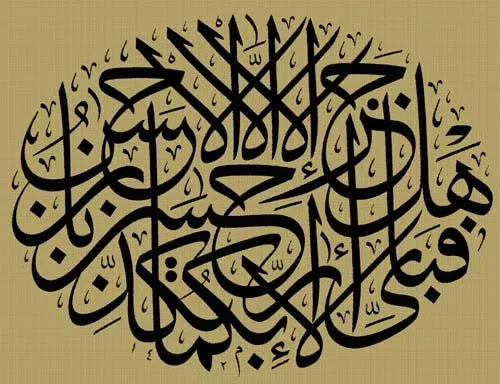 هل جزاء الإحسان إلا الإحسان
فبأي آلاء ربكما تكذبان